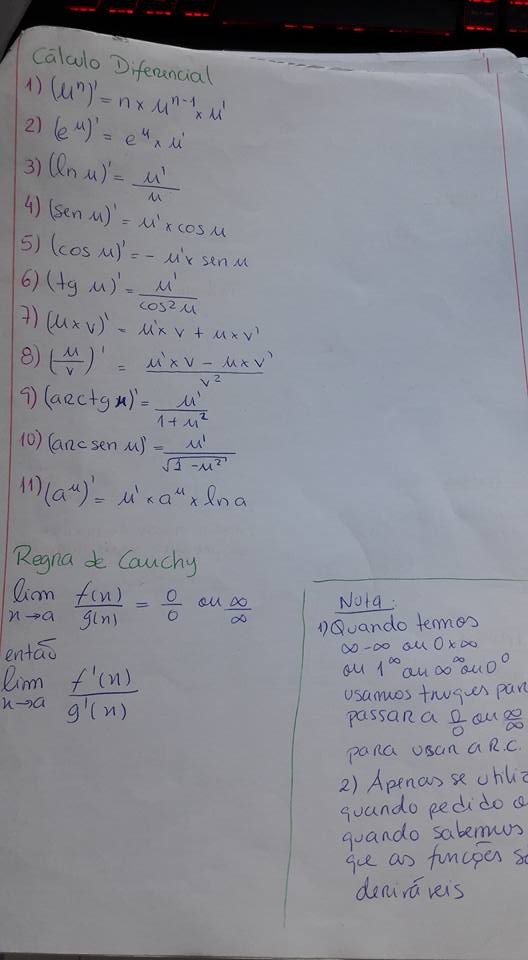 Cálculo Diferencial
1) (uⁿ)' = n × uⁿ⁻¹ × u'
2) (eᵘ)' = eᵘ × u'
3) (ln u)' = u'/u
4) (sen u)' = u' × cos u
5) (cos u)' = - u' × sen u
6) (tg u)' = u'/cos² u
7) (u × v)' = u' × v + u × v'
8) (u/v)' = (u' × v - u × v')/v²
9) (arctg u)' = u'/(1 + u²)
10) (arcsen u)' = u'/√(1 - u²)
11) (aᵘ)' = u' × aᵘ × ln a
Regra de Cauchy
lim x→a f(x)/g(x) = 0/0 ou ∞/∞
então
lim x→a f'(x)/g'(x)
Nota:
1) Quando temos
∞-∞ ou 0×∞
ou 1^∞ ou ∞^∞ ou 0⁰
usamos truques par
passar a 0/0 ou ∞/∞
para usar a R.C.
2) Apenas se utiliz
quando pedido o
quando sabemos
que as funções s
deriváveis